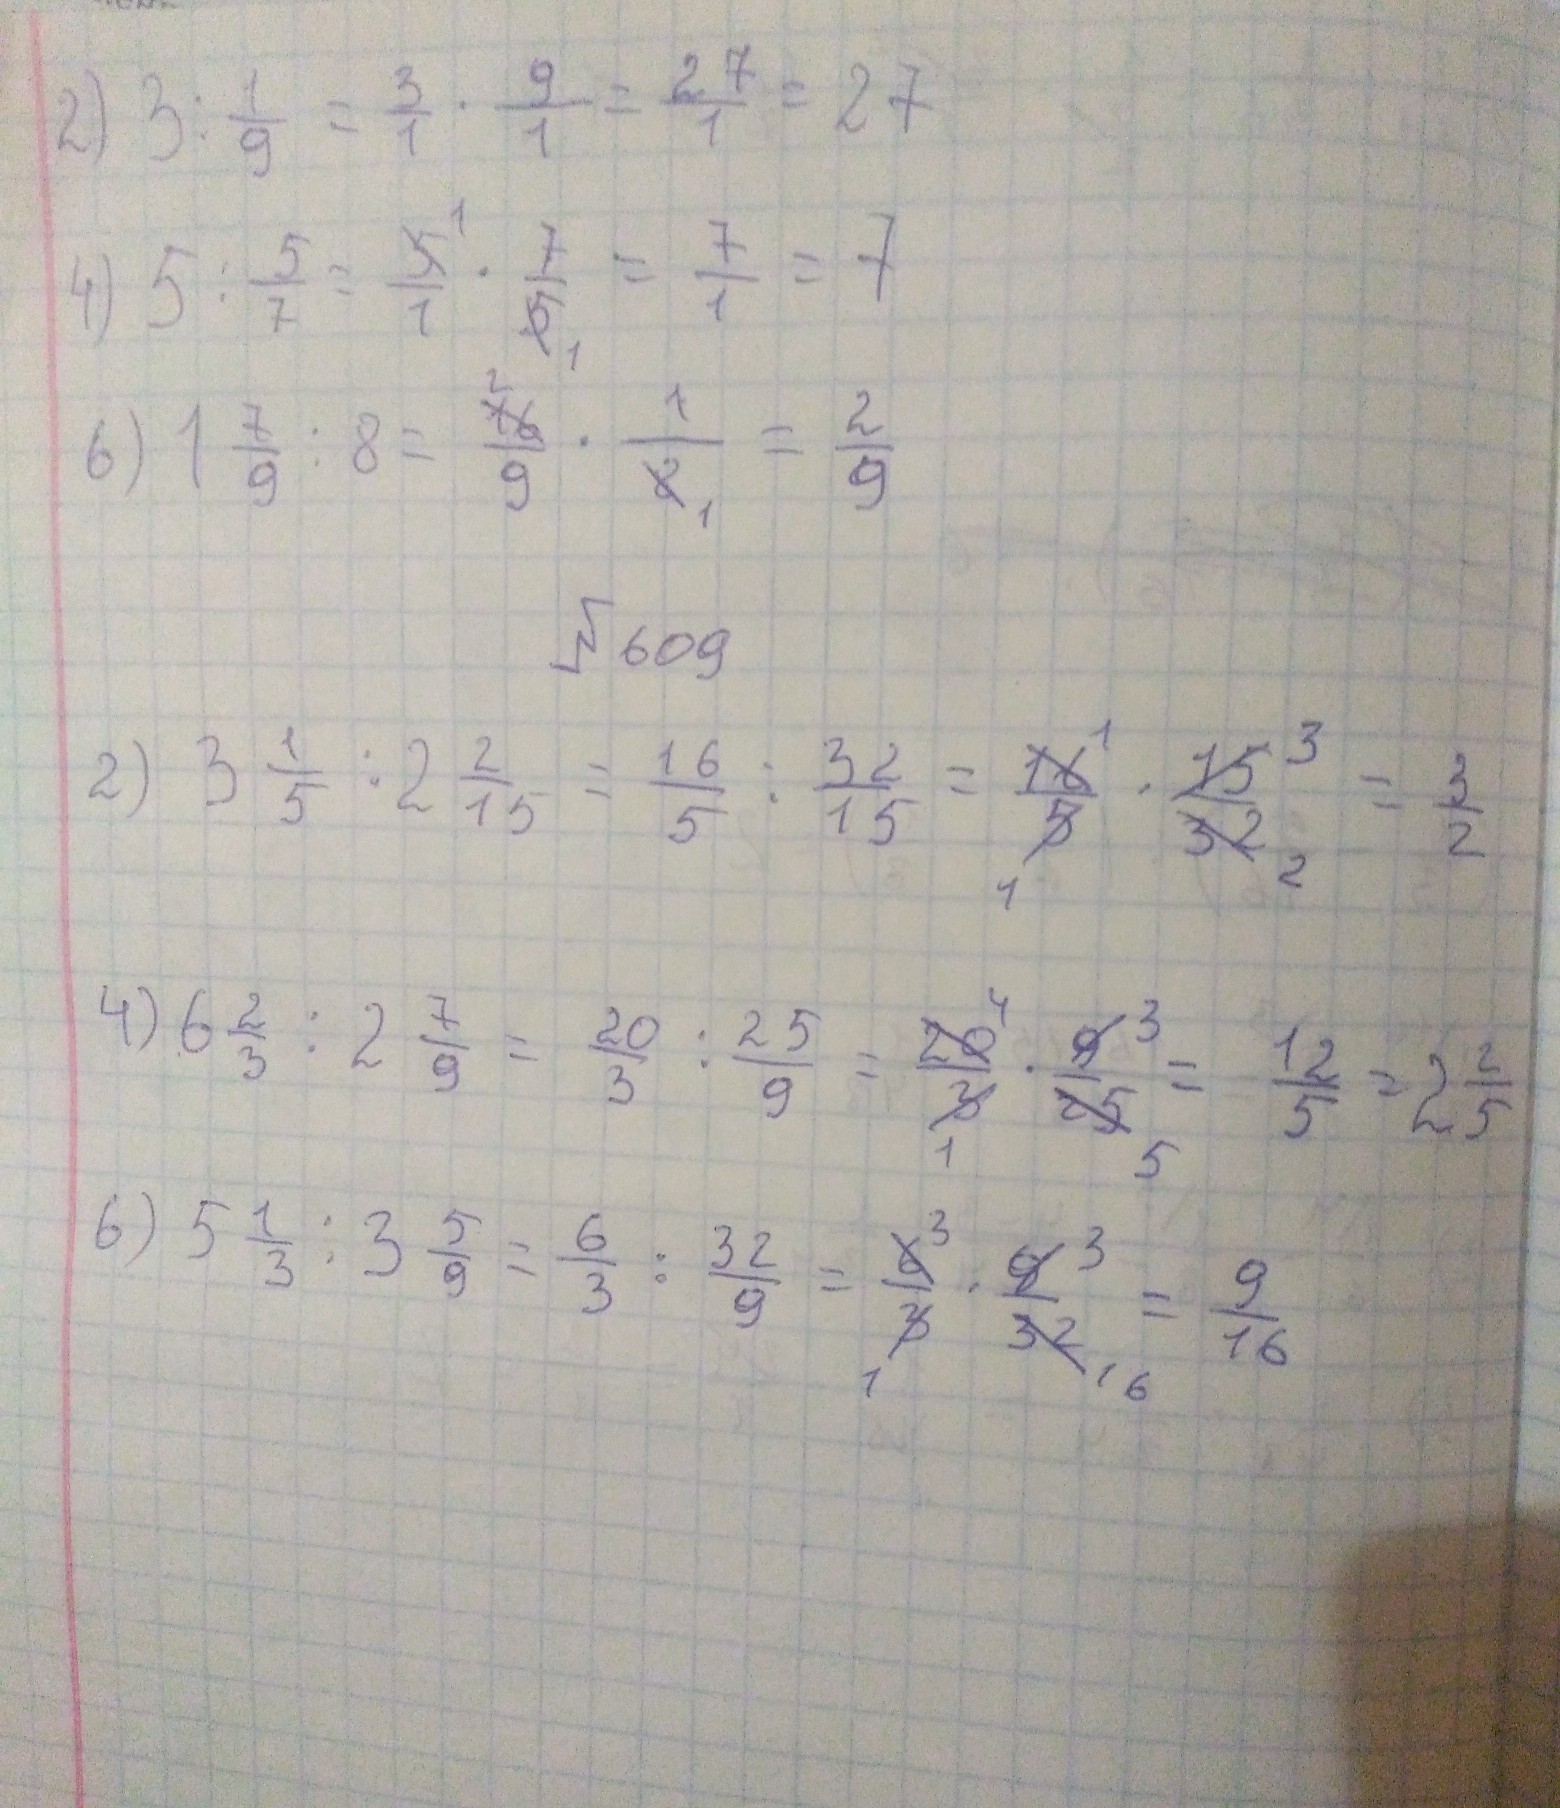 2) 3 : 1/9 = 3/1 · 9/1 = 27/1 = 27
4) 5 : 5/7 = 5/1 1 · 7/5 1 = 7/1 = 7
6) 1 7/9 : 8 = 2 16/9 · 1/8 1 = 2/9
№ 609
2) 3 1/5 : 2 2/15 = 16/5 : 32/15 = 16 1/5 1 · 15 3/32 2 = 3/2
4) 6 2/3 : 2 7/9 = 20/3 : 25/9 = 20 4/3 1 · 9 3/25 5 = 12/5 = 2 2/5
6) 5 1/3 : 3 5/9 = 6/3 : 32/9 = 6 3/3 1 · 9 3/32 16 = 9/16